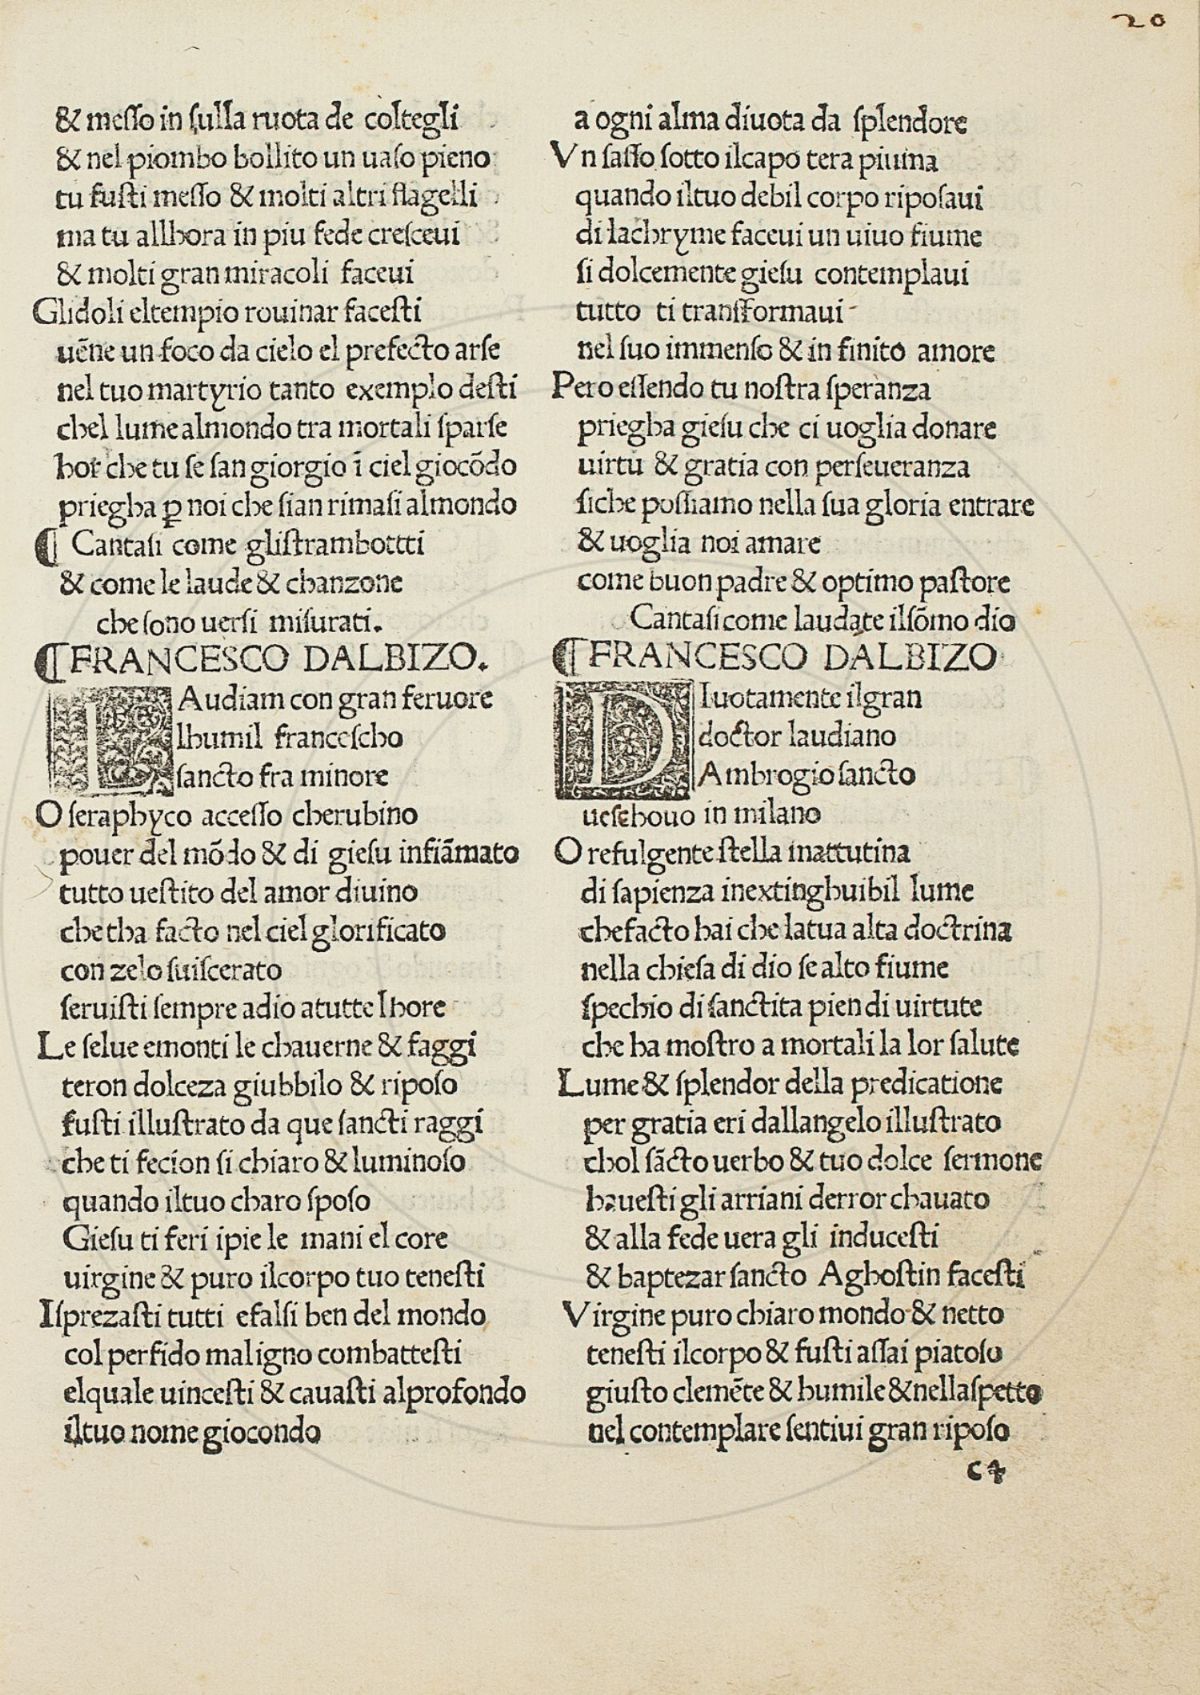 20
& messo in sulla ruota de coltegli
& nel piombo bollito un uaso pieno
tu fusti messo & molti altri flagelli
ma tu allhora in piu fede cresceui
& molti gran miracoli faceui
Glidoli eltempio rouinar facesti
uēne un foco da cielo el prefecto arse
nel tuo martyrio tanto exemplo desti
chel lume almondo tra mortali sparse
hor che tu se san giorgio ī ciel giocōdo
priegha ꝑ noi che sian rimasi almondo
¶ Cantasi come glistrambottti
& come le laude & chanzone
che sono uersi misurati.
¶ FRANCESCO DALBIZO.
LAudiam con gran feruore
lhumil francescho
sancto fra minore
O seraphyco accesso cherubino
pouer del mōdo & di giesu infiāmato
tutto uestito del amor diuino
che tha facto nel ciel glorificato
con zelo suiscerato
seruisti sempre adio atutte lhore
Le selue emonti le chauerne & faggi
teron dolceza giubbilo & riposo
fusti illustrato da que sancti raggi
che ti fecion si chiaro & luminoso
quando iltuo charo sposo
Giesu ti feri ipie le mani el core
uirgine & puro ilcorpo tuo tenesti
Isprezasti tutti efalsi ben del mondo
col perfido maligno combattesti
elquale uincesti & cauasti alprofondo
iltuo nome giocondo
a ogni alma diuota da splendore
Vn sasso sotto ilcapo tera piuina
quando iltuo debil corpo riposaui
di lachryme faceui un uiuo fiume
si dolcemente giesu contemplaui
tutto ti transformaui
nel suo immenso & in finito amore
Pero essendo tu nostra speranza
priegha giesu che ci uoglia donare
uirtu & gratia con perseueranza
siche possiamo nella sua gloria entrare
& uoglia noi amare
come buon padre & optimo pastore
Cantasi come laudate ilsōmo dio
¶ FRANCESCO DALBIZO
DIuotamente ilgran
doctor laudiano
Ambrogio sancto
ueschouo in milano
O refulgente stella mattutina
di sapienza inextinghuibil lume
chefacto hai che latua alta doctrina
nella chiesa di dio se alto fiume
spechio di sanctita pien di uirtute
che ha mostro a mortali la lor salute
Lume & splendor della predicatione
per gratia eri dallangelo illustrato
chol sācto uerbo & tuo dolce sermone
hauesti gli arriani derror chauato
& alla fede uera gli inducesti
& baptezar sancto Aghostin facesti
Virgine puro chiaro mondo & netto
tenesti ilcorpo & fusti assai piatoso
giusto clemēte & humile &nellaspetto
nel contemplare sentiui gran riposo
c4